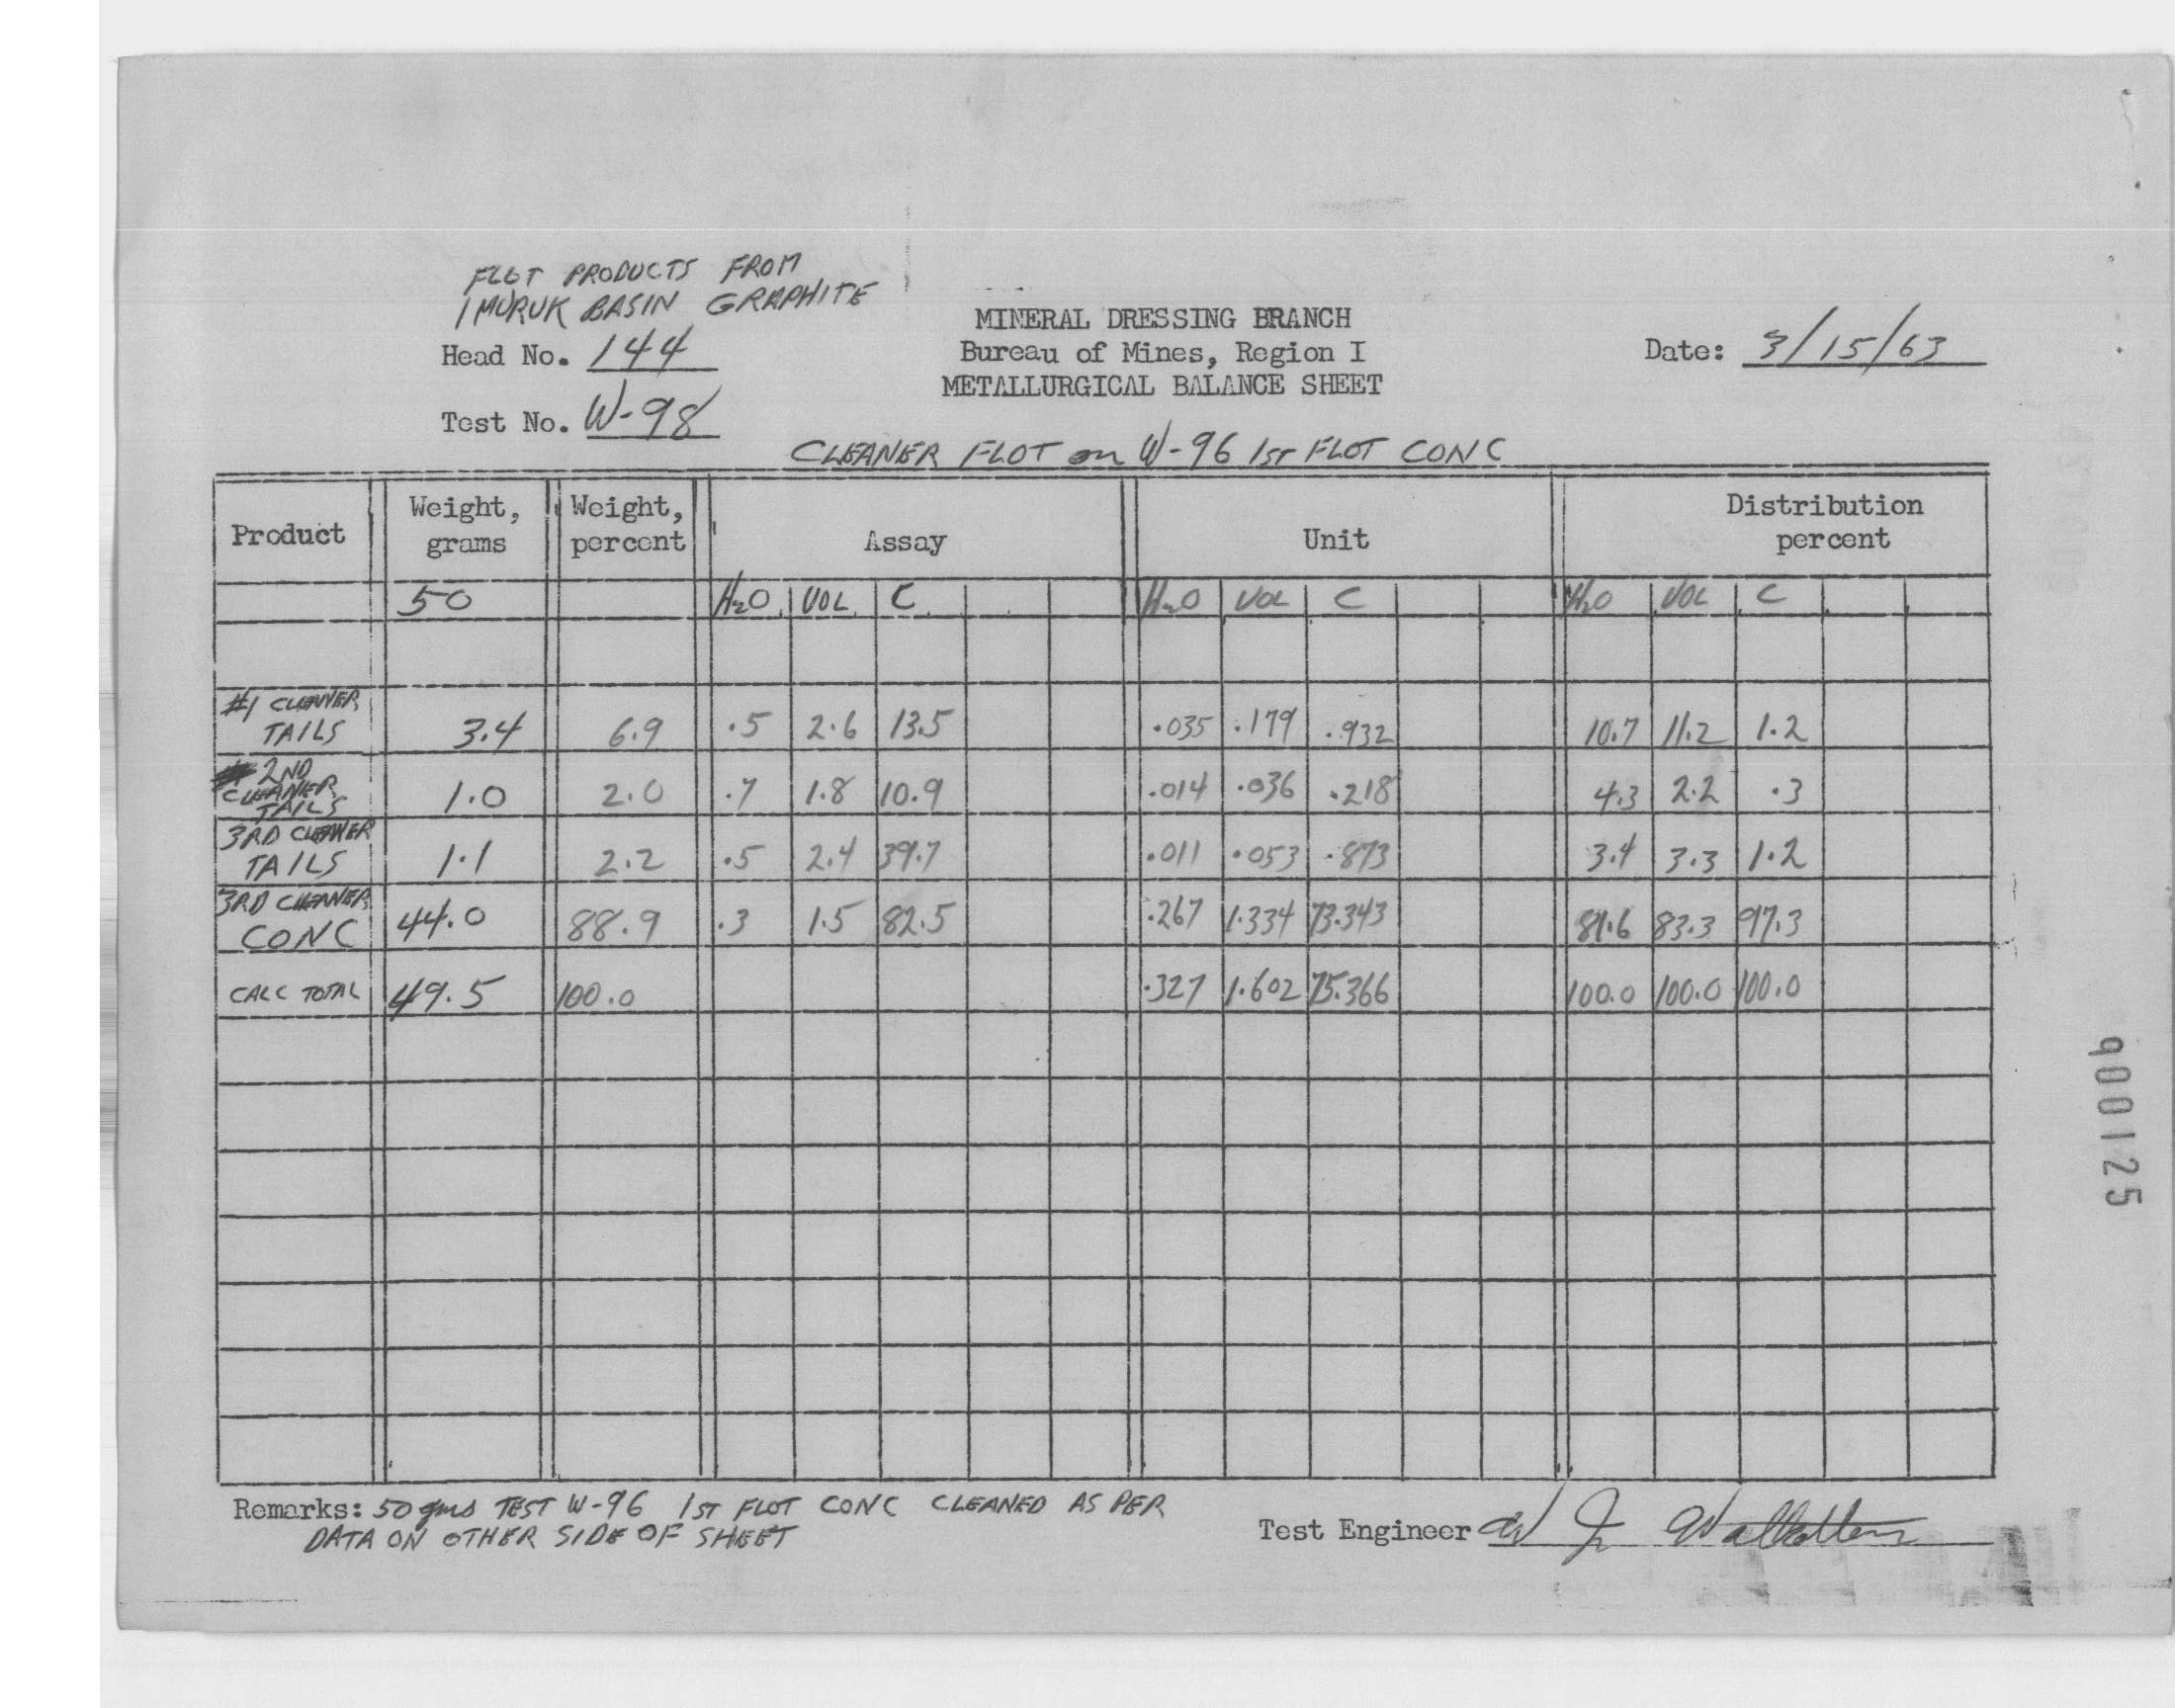 FLOT PRODUCTS FROM
IMURUK BASIN GRAPHITE
Head No. 144
Test No. W-98
MINERAL DRESSING BRANCH
Bureau of Mines, Region I
METALLURGICAL BALANCE SHEET
Date: 3/15/63
CLEANER FLOT on W-96 1ST FLOT CONC
Product Weight, grams Weight, percent Assay Unit Distribution percent
50 H2O VOL C H2O VOL C H2O VOL C
#1 CLEANER TAILS 3.4 6.9 .5 2.6 13.5 .035 .179 .932 10.7 11.2 1.2
2ND CLEANER TAILS 1.0 2.0 .7 1.8 10.9 .014 .036 .218 4.3 2.2 .3
3RD CLEANER TAILS 1.1 2.2 .5 2.4 39.7 .011 .053 .873 3.4 3.3 1.2
3RD CLEANER CONC 44.0 88.9 .3 1.5 82.5 .267 1.334 73.343 81.6 83.3 97.3
CALC TOTAL 49.5 100.0 .327 1.602 75.366 100.0 100.0 100.0
Remarks: 50 gms TEST W-96 1ST FLOT CONC CLEANED AS PER
DATA ON OTHER SIDE OF SHEET
Test Engineer
900125